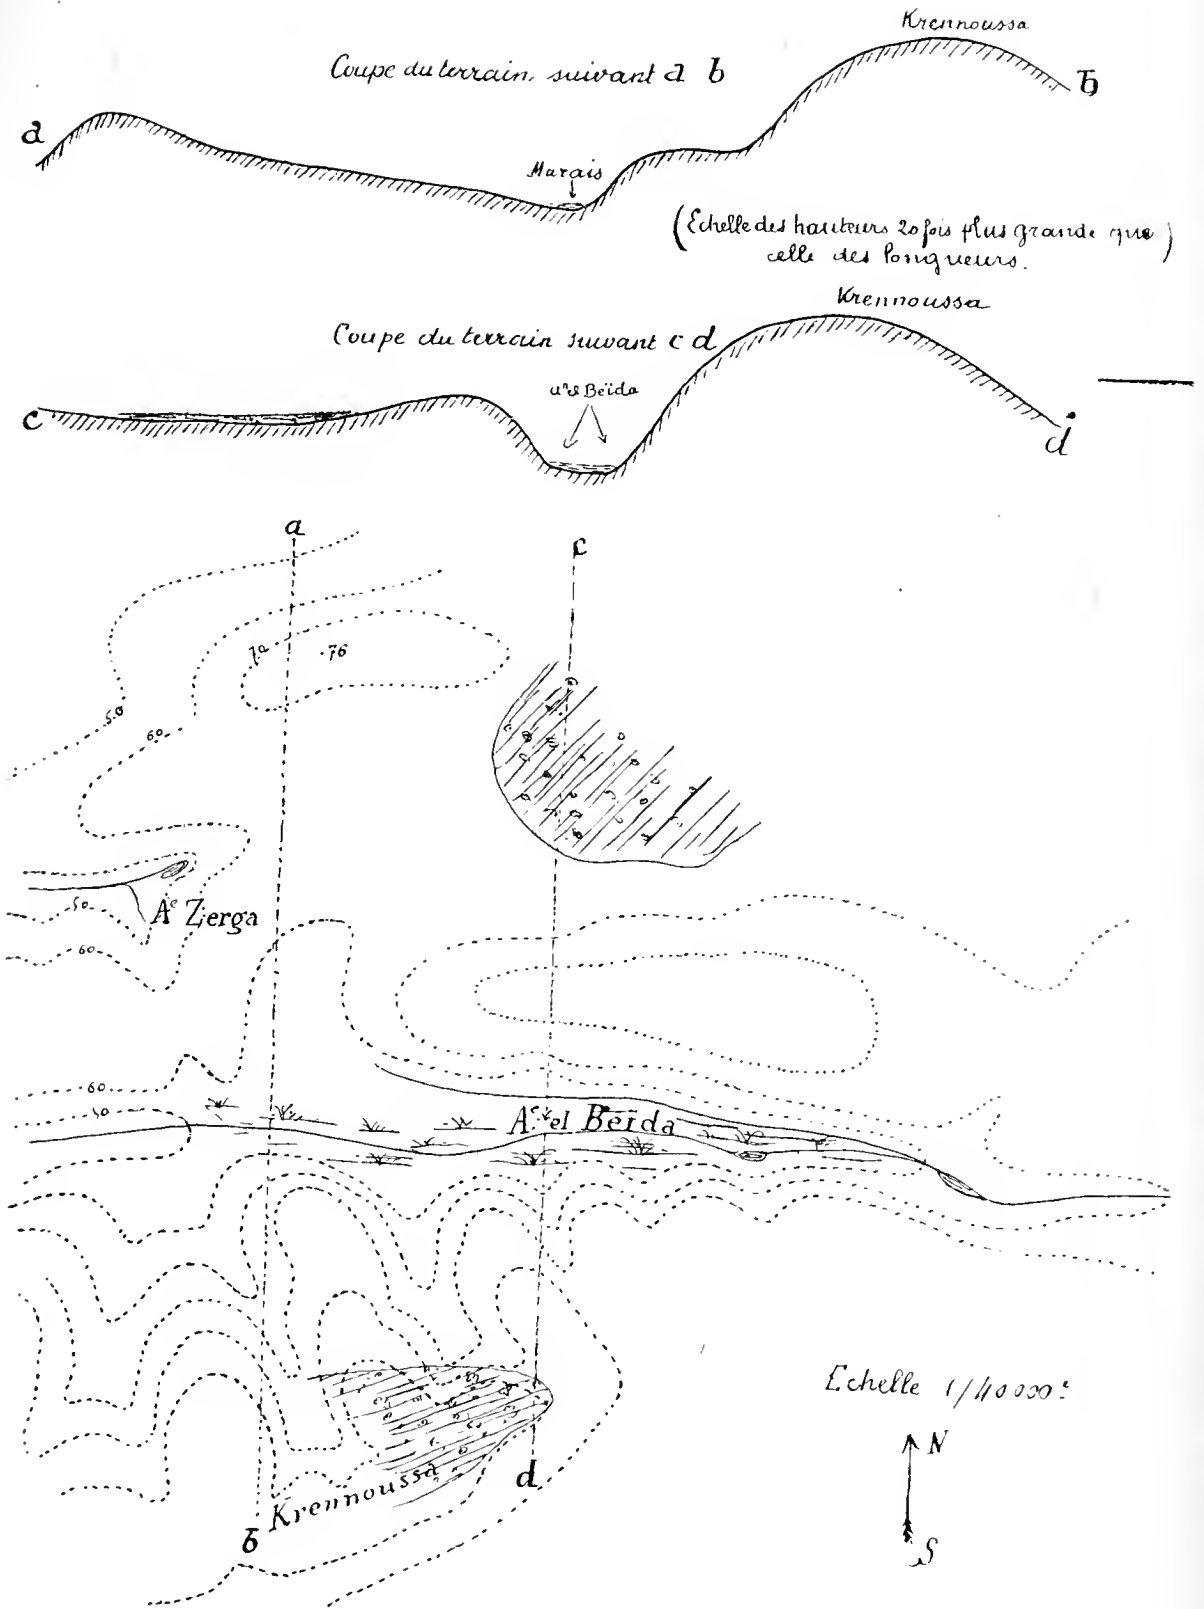 Krennoussa
Coupe du terrain suivant a b
a
b
Marais
(Echelle des hauteurs 20 fois plus grande que
celle des longueurs.)
Krennoussa
Coupe du terrain suivant c d
el Beïda
c
d
a
c
70
.76
50
60
Aⁿ Zerga
50
60
60
50
Aⁿ el Beïda
Echelle 1/40000ᵉ
N
Krennoussa
d
b
S